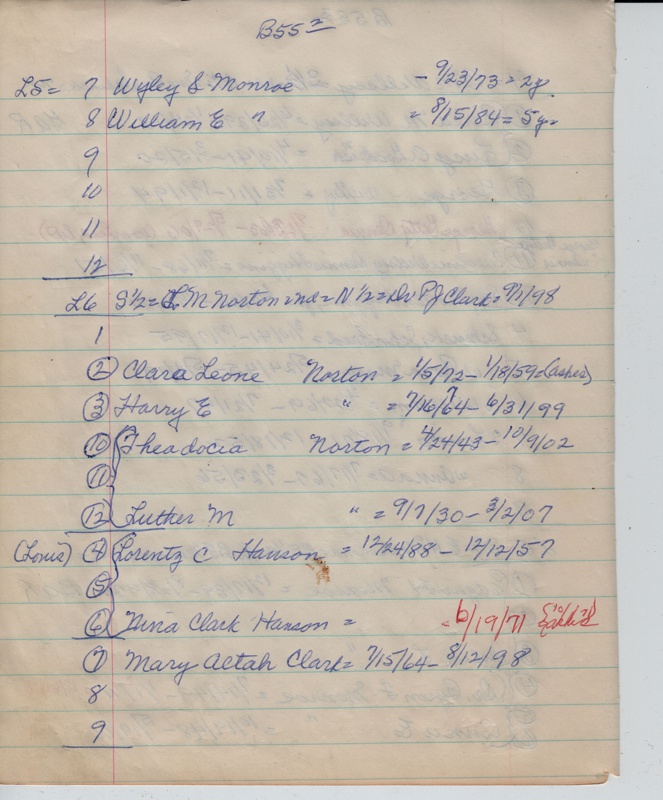 B55²
L5 = 7 Wyley S Monroe - 9/23/73 = 2y.
8 William E " = 8/15/84 = 5y-
9
10
11
12
L6 S 1/2 = L M Norton - N 1/2 = Dr P J Clark = 9/1/98
1
2 Clara Leone Norton = 1/5/72 - 1/18/59 = (ashes)
3 Harry E " = 7/16/64 - 6/31/99
10 Theadocia Norton = 4/24/43 - 10/9/02
11
12 Luther M " = 9/7/30 - 3/2/07
(Louis) 4 Lorentz C Hanson = 12/24/88 - 12/12/57
5
6 Nina Clark Hanson = = 6/19/71
7 Mary Altah Clark = 7/15/64 - 8/12/98
8
9